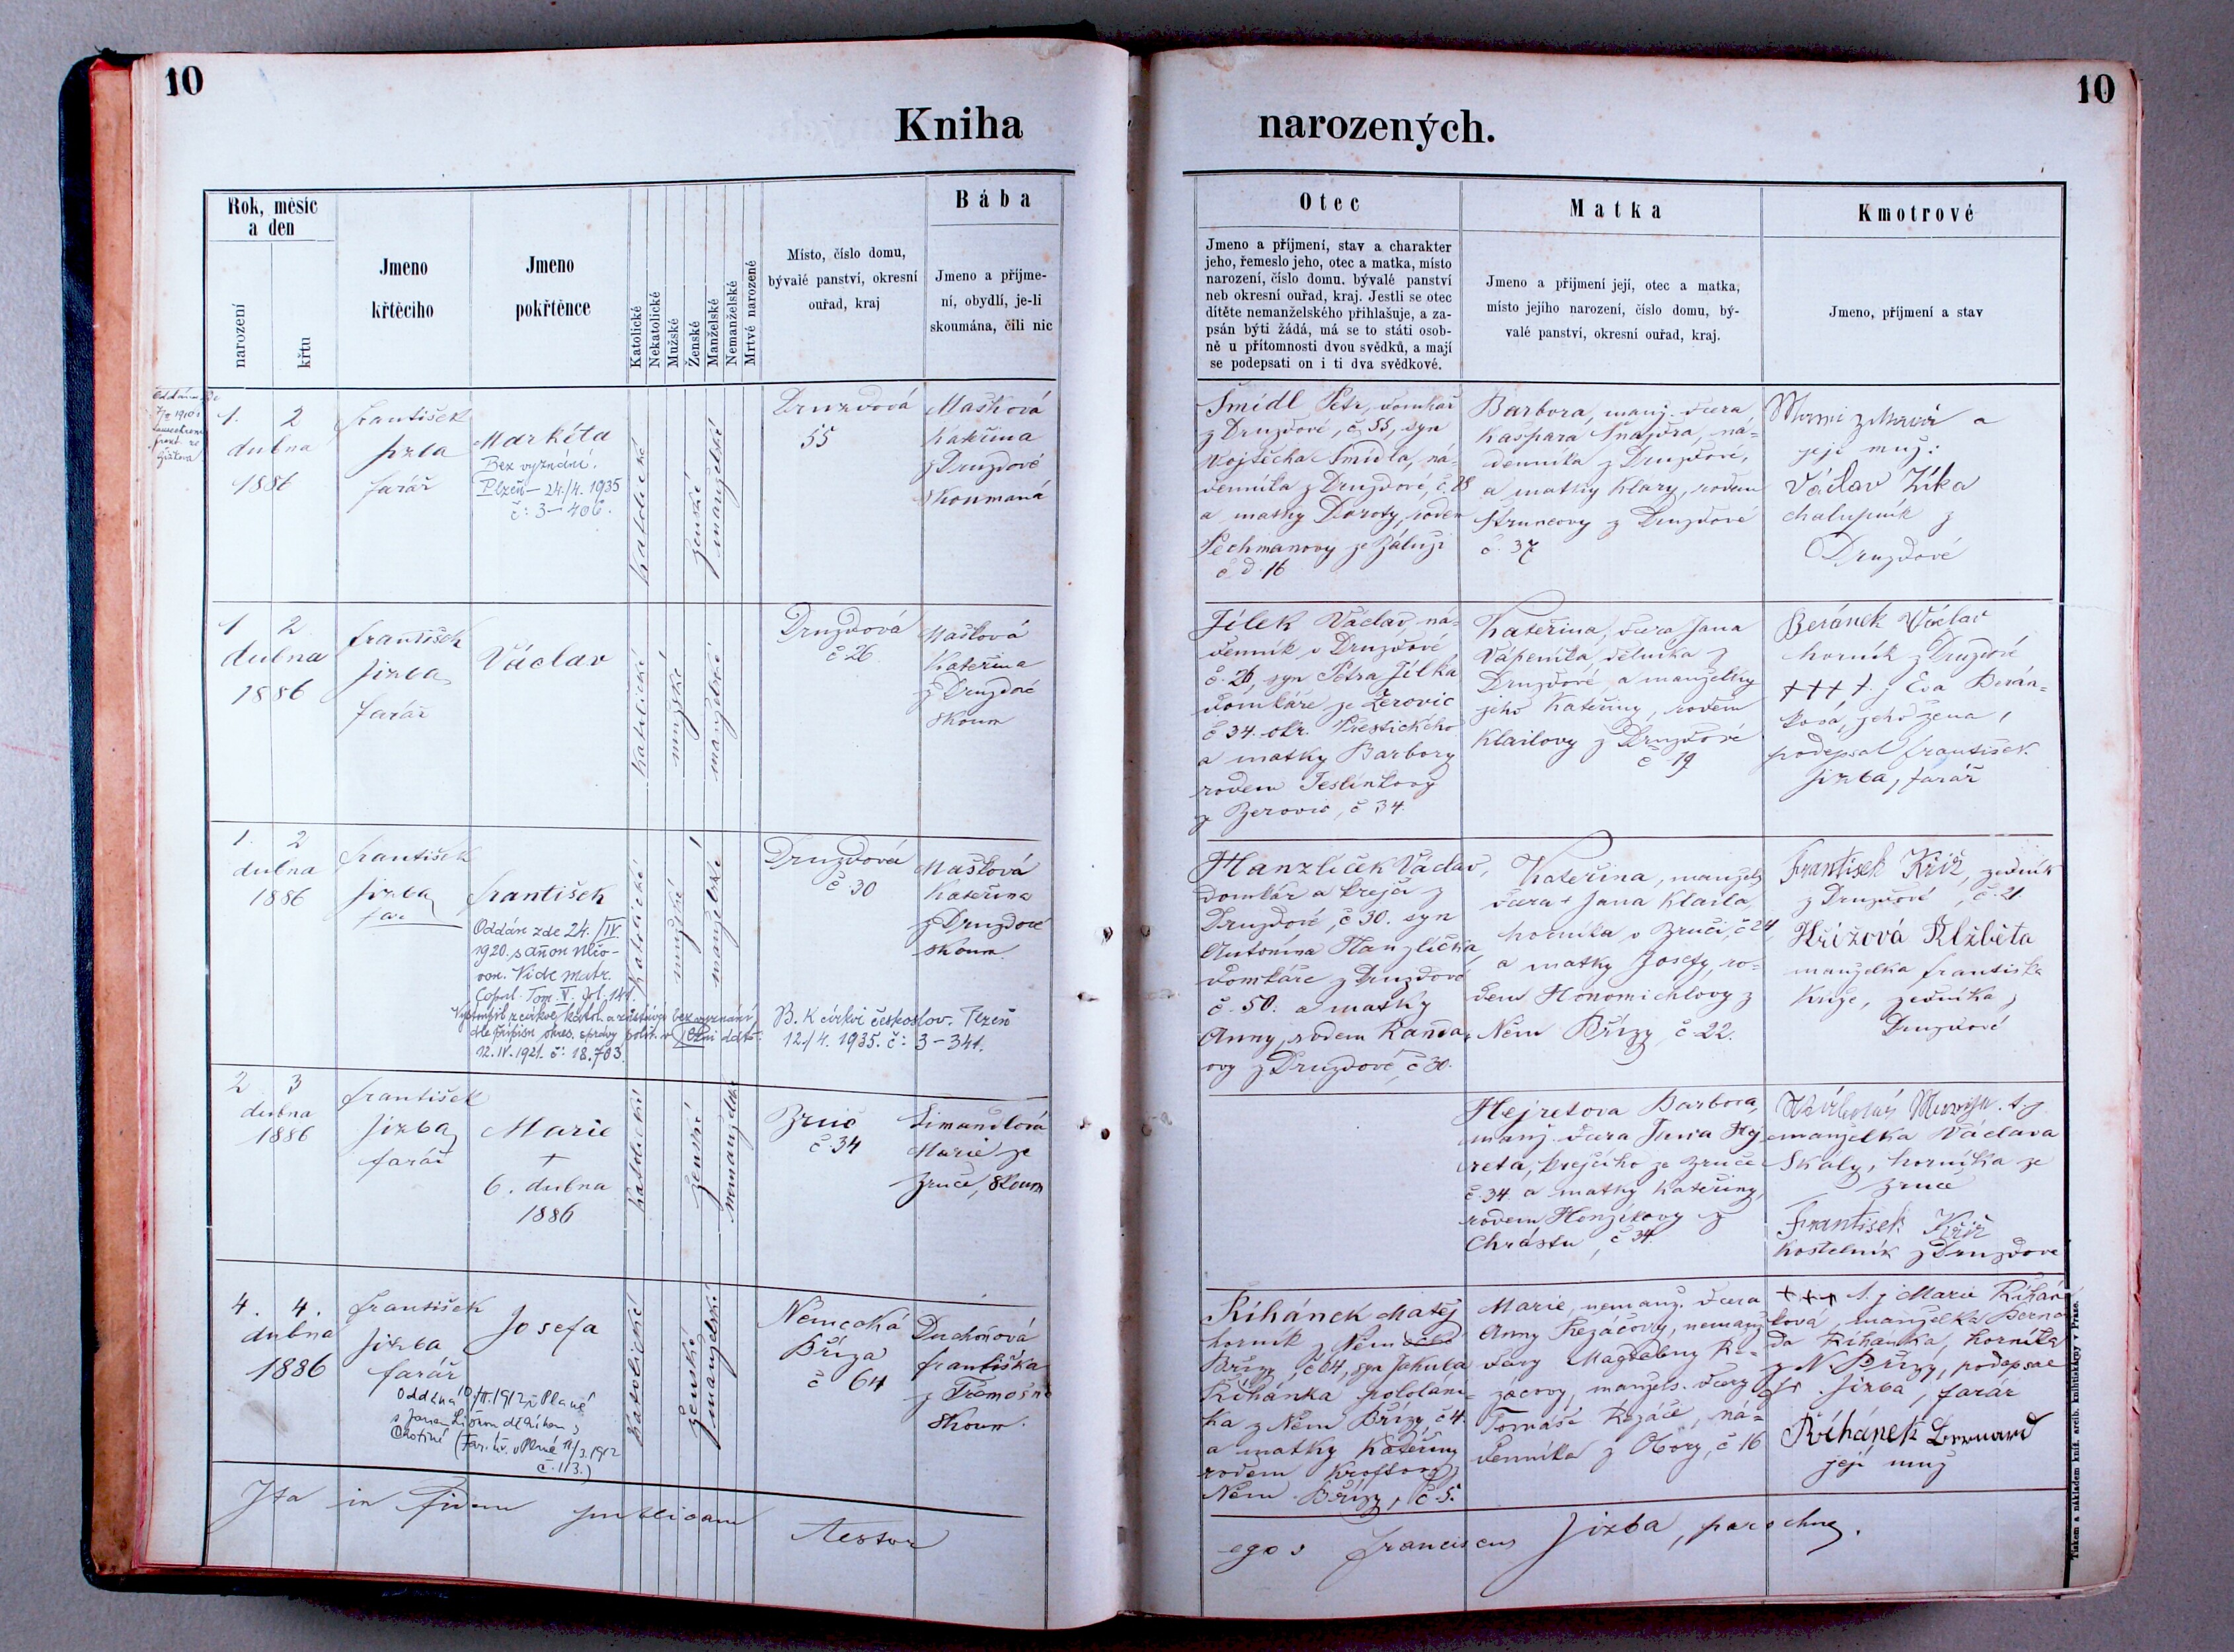 10
Kniha
Rok, měsíc
a den
narození
křtu
Jmeno
křtěcího
Jmeno
pokřtěnce
Katolické
Nekatolické
Mužské
Ženské
Manželské
Nemanželské
Mrtvé narozené
Místo, číslo domu,
bývalé panství, okresní
ouřad, kraj
Bába
Jmeno a příjme-
ní, obydlí, je-li
skoumána, čili nic
1. 2
dubna
1886
František
Jizba
farář
Markéta
Bez vyznání.
Plzeň – 24./4. 1935
č: 3–406.
katolické
ženské
manželské
Druzdová
55
Mašková
Kateřina
z Druzdové
skoumaná
1 2
dubna
1886
František
Jizba
farář
Václav
katolické
mužské
manželské
Druzdová
č 26
Mašková
Kateřina
z Druzdové
skoum
1. 2
dubna
1886
František
Jizba
far
František
Oddán zde 24./IV
1920. s
Vide matr.
Copul. Tom. V. fol. 141.
dle přípisu okres. správy polit. v Plzni ddto:
12. IV. 1921. č: 18.703.
katolické
mužské
manželské
Druzdová
č 30
Mašková
Kateřina
z Druzdové
skoum.
B. K církvi českoslov. Plzeň
12./4. 1935. č: 3–341.
2 3
dubna
1886
František
Jizba
farář
Marie
†
6. dubna
1886
katolické
ženské
nemanželské
Zruč
č 34
Šimandlová
Marie ze
Zruče, skoum
4. 4.
dubna
1886
František
Jizba
farář
Josefa
Oddána 10./II. 1912 v Plané
katolické
ženské
manželské
Německá
Bříza
č 64
Duchoňová
Františka
z Třemošné
skoum.
Ita in fidem publicam testor
10
narozených.
Otec
Jmeno a příjmení, stav a charakter
jeho, řemeslo jeho, otec a matka, místo
narození, číslo domu. bývalé panství
neb okresní ouřad, kraj. Jestli se otec
dítěte nemanželského přihlašuje, a za-
psán býti žádá, má se to státi osob-
ně u přítomnosti dvou svědků, a mají
se podepsati on i ti dva svědkové.
Matka
Jmeno a přijmení její, otec a matka,
místo jejího narození, číslo domu, bý-
valé panství, okresní ouřad, kraj.
Kmotrové
Jmeno, příjmení a stav
Šmídl Petr, domkář
z Druzdové, č 55, syn
Vojtěcha Šmídla, ná-
denníka z Druzdové, č. 28
a matky Doroty, rodem
Pechmanovy ze Záluží
č. d. 16
Barbora, manž. dcera
Kašpara Šnajdra, ná-
denníka z Druzdové,
a matky Klary, rodem
Štruncovy z Druzdové
č. 37
a
její muž:
Václav Zíka
chalupník z
Druzdové
Jílek Václav, ná-
denník v Druzdové
č. 26, syn Petra Jílka
domkáře ze Žerovic
č 34. okr. Přestického
a matky Barbory
rodem Teslíkovy
z Žerovic, č 34.
Kateřina, dcera Jana
Vápeníka, dělníka z
Druzdové a manželky
jeho Kateřiny, rodem
Klailovy z Druzdové
č 19
Beránek Václav
horník z Druzdové
††† t. j. Eva Berán-
ková, jeho žena,
podepsal František
Jizba, farář
Hanzlíček Václav,
domkář a krejčí z
Druzdové, č 30. syn
Antonína Hanzlíčka,
domkáře z Druzdové
č. 50. a matky
Anny, rodem Kanda-
ovy z Druzdové, č 30.
Kateřina, manžels.
dcera Jana Klaila,
horníka v Zruči, č 24,
a matky Josefy, ro-
dem Honomichlovy z
Něm Břízy č 22.
František Kříž, zedník
z Druzdové, č. 21.
Křížová Alžběta
manželka Františka
Kříže, zedníka z
Druzdové
Hejretova Barbora,
manž. dcera Jana Hej
reta, krejčího ze Zruče
č. 34 a matky Kateřiny,
rodem Honzíkovy z
Chrástu, č 34.
t. j.
manželka Václava
Skály, horníka ze
Zruče
František Kříž
kostelník z Druzdové
Říhánek Matěj
horník z Něm
Břízy, č 64, syn Jakuba
Říhánka pololání-
ka z Něm Břízy č 4.
a matky Kateřiny
rodem Kroftovy z
Něm. Břízy, č 5.
Marie, nemanž. dcera
Anny Řezáčovy, nemanž
dcery Magdaleny Ře-
záčovy, manžels. dcery
Tomáše Řezáče, ná-
denníka z Obory, č 16
††† t. j. Marie Říhán
ková, manželka Berna
da Říhánka, horníka
z N. Břízy, podepsal
Fr. Jizba, farář
Říhánek Bernard
její muž
ego Franciscus Jizba, parochus.
Tiskem a nákladem kníž. arcib. knihtiskárny v Praze.